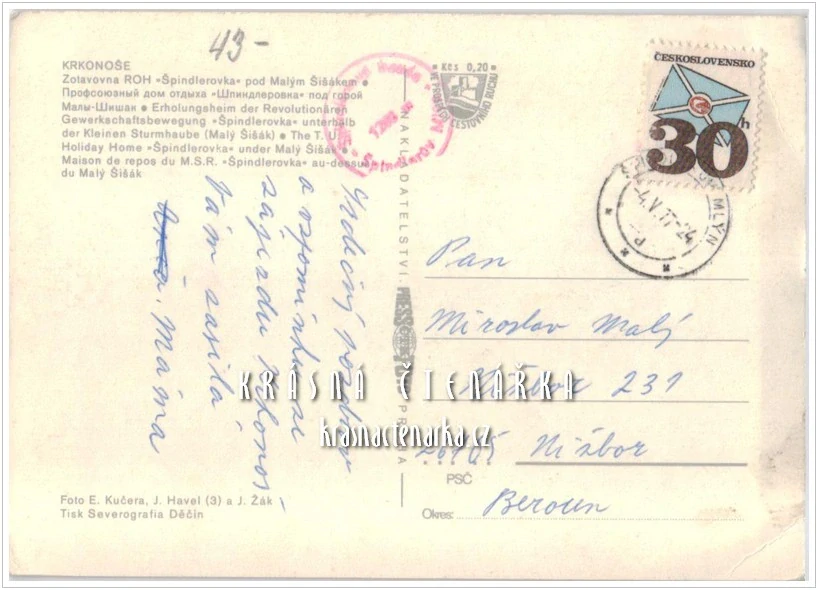 43-
KRKONOŠE
Zotavovna ROH »Špindlerovka« pod Malým Šišákem ●
Профсоюзный дом отдыха »Шпиндлеровка« под горой
Малы-Шишак ● Erholungsheim der Revolutionären
Gewerkschaftsbewegung »Špindlerovka« unterhalb
der Kleinen Sturmhaube (Malý Šišák) ● The T. U.
Holiday Home »Špindlerovka« under Malý Šišák ●
Maison de repos du M.S.R. »Špindlerovka« au-dessus
du Malý Šišák
Srdečný pozdrav
a vzpomínku ze
zájezdu Krkonoš
Vám zasílá
Máma
Foto E. Kučera, J. Havel (3) a J. Žák
Tisk Severografia Děčín
NAKLADATELSTVÍ
PRAHA
Kčs 0,20
VE PROSPĚCH CESTOVNÍHO RUCHU
ČESKOSLOVENSKO
30h
MLÝN
-4.V.77-24
Pan
Miroslav Malý
Nižbor 231
26705 Nižbor
PSČ
Okres: Beroun
KRÁSNÁ ČTENÁŘKA
krasnactenarka.cz